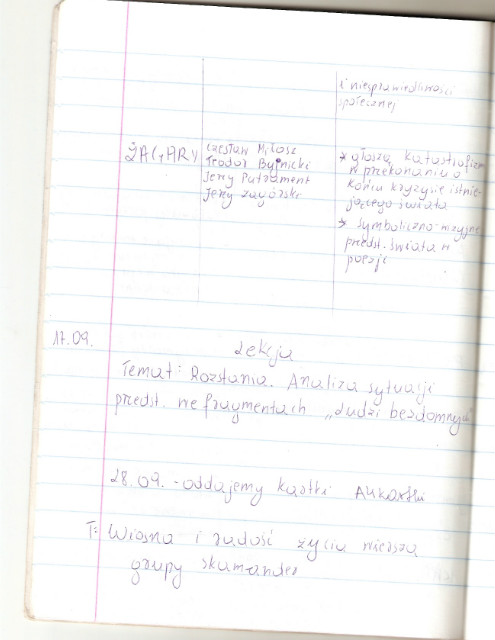 i niesprawiedliwości
społecznej
ŻAGARY
Czesław Miłosz
Teodor Bujnicki
Jerzy Putrament
Jerzy Zagórski
* głoszą katastrofizm
w przekonaniu o
końcu kryzysie istnie-
jącego świata
* symboliczno-wizyjne
przedst. świata w
poezji
17.09.
Lekcja
Temat: Rozstania. Analiza sytuacji
przedst. we fragmentach „Ludzi bezdomnych"
28.09. - oddajemy kartki
T: Wiosna i radość życia wiersza
grupy skamander